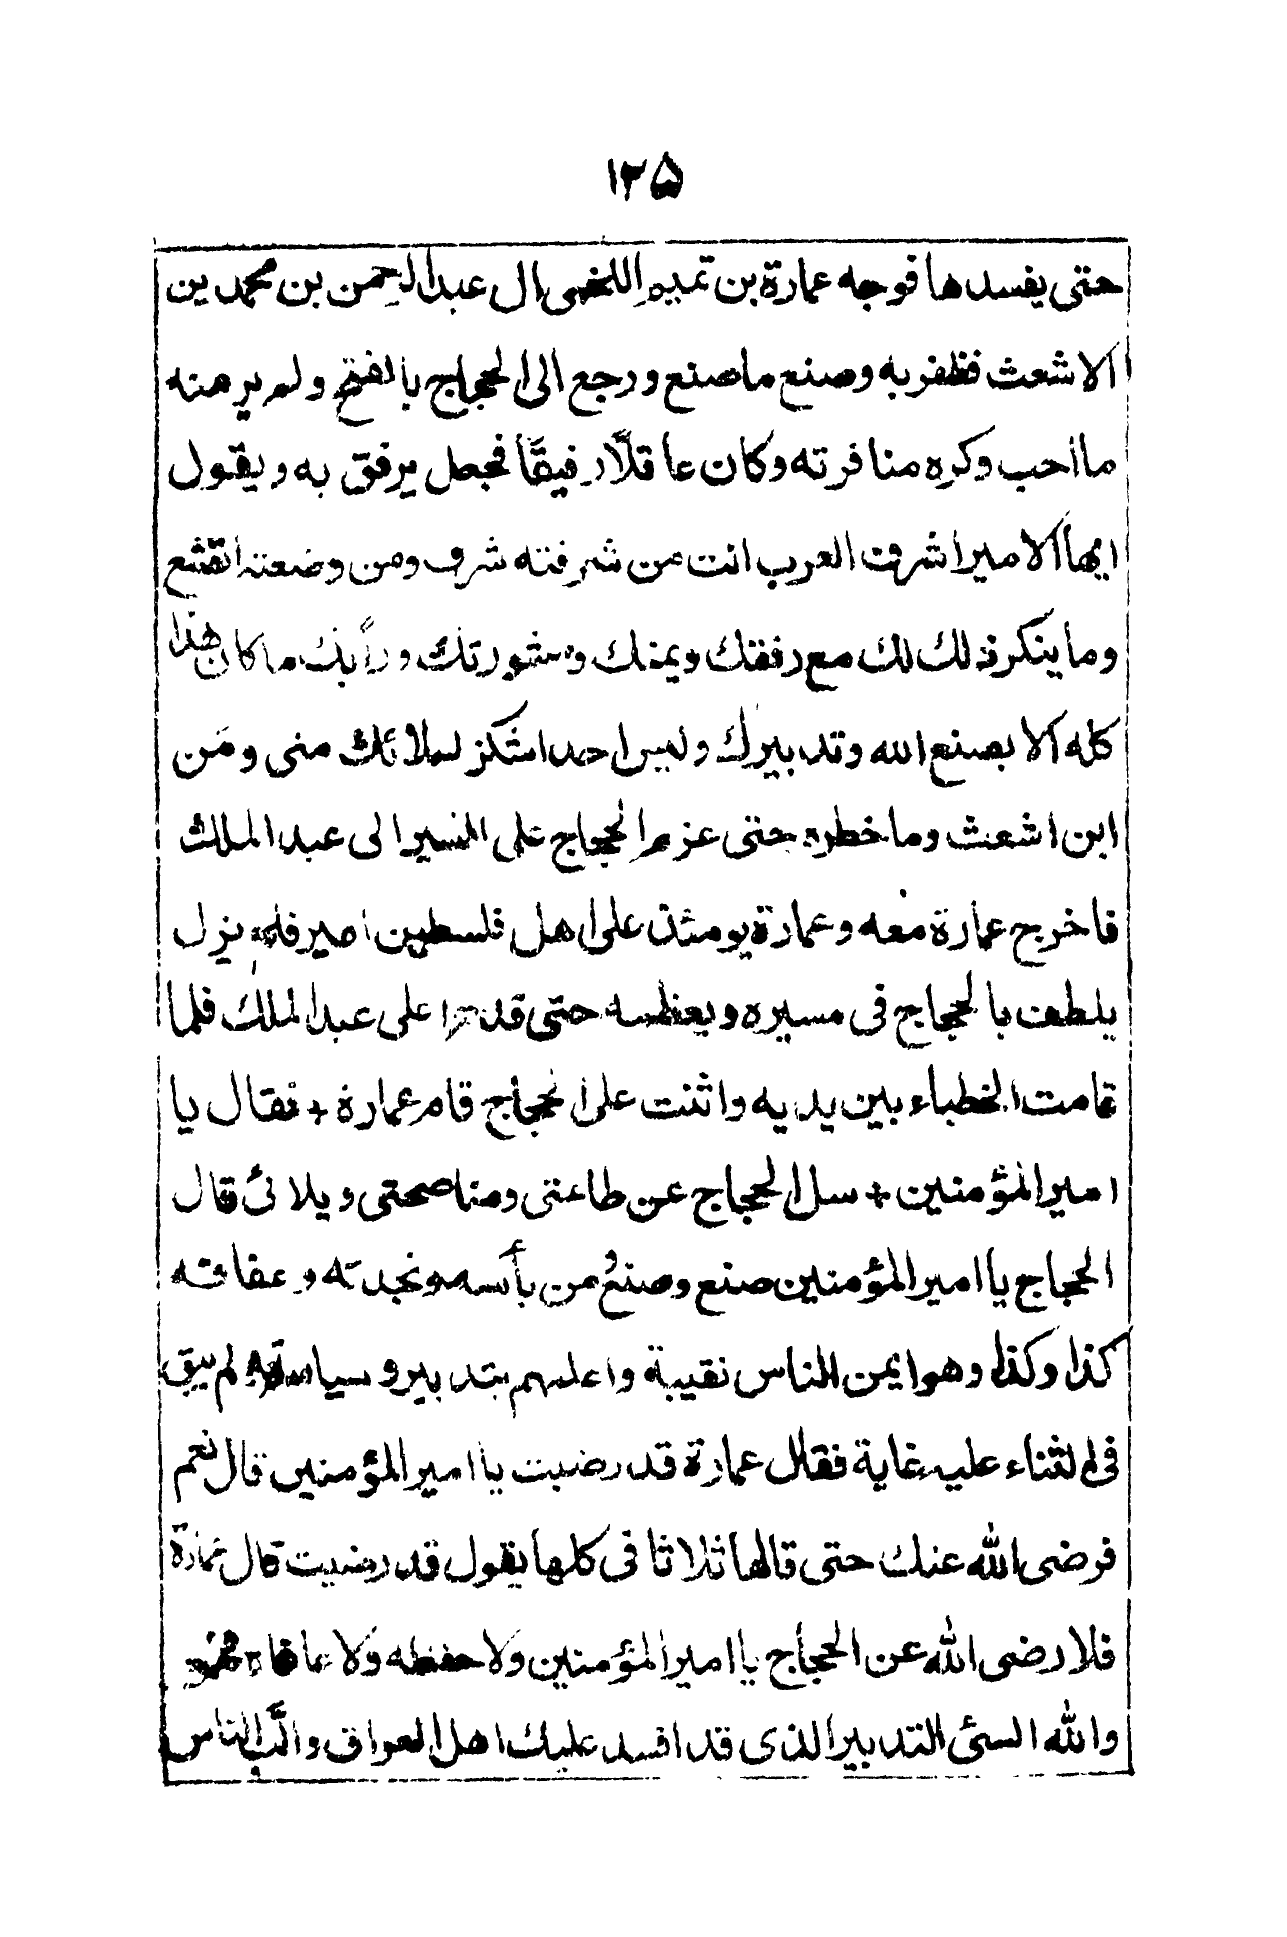 ١٢٥
حتى يفسدها فوجه عمارة بن تميم اللخمى ال عبد الرحمن بن محمد بن
الاشعث فظفر به وصنع ما صنع ورجع الى الحجاج بالفتح ولم ير منه
ما احب وكره منافرته وكان عاقلًا رفيقًا فجعل يرفق به ويقول
ايها الامير اشرف العرب انت من شرفته شرف ومن وضعته اتضع
وما ينكر ذلك لك مع رفقك ويمنك ومشورتك ورأيك ما كان هذا
كله الا بصنع الله وتدبيرك وليس احد اشكر لبلائك منى ومَن
ابن اشعث وما خطره حتى عزم الحجاج على المسير الى عبد الملك
فاخرج عمارة معه وعمارة يومئذ على اهل فلسطين امير فلم يزل
يلطف بالحجاج فى مسيره ويعظمه حتى قدموا على عبد الملك فلما
قامت الخطباء بين يديه واثنت على الحجاج قام عمارة + فقال يا
امير المؤمنين + سل الحجاج عن طاعتى ومناصحتى وبلائى قال
الحجاج يا امير المؤمنين صنع وصنع من بأسه ونجدته وعفافه
كذا وكذا وهو ايمن الناس نقيبة واعلمهم بتدبير وسياسة لم يبق
فى الثناء عليه غاية فقال عمارة قد رضيت يا امير المؤمنين قال نعم
فرضى الله عنك حتى قالها ثلاثا فى كلها يقول قد رضيت قال عمارة
فلا رضى الله عن الحجاج يا امير المؤمنين ولا حفظه ولا عافاه فهو
والله السئ التدبير الذى قد افسد عليك اهل العراق والّب الناس